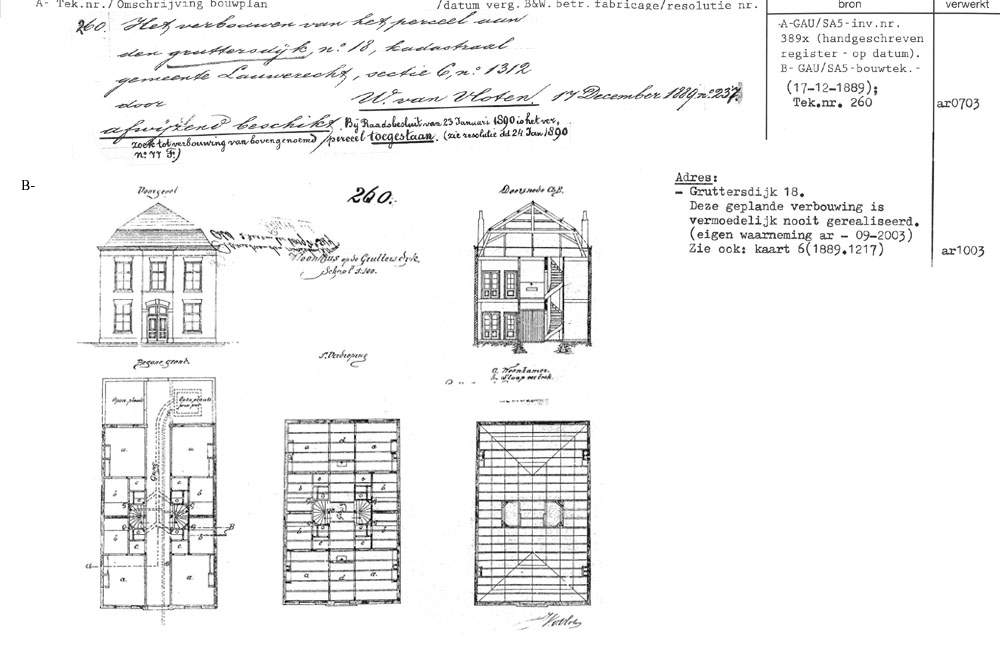 A- Tek.nr./Omschrijving bouwplan /datum verg. B&W. betr. fabricage/resolutie nr.
bron
verwerkt
260. Het verbouwen van het perceel aan
den gruttersdijk, no. 18, kadastraal
gemeente Lauwerecht, sectie C, no. 1312
door W. van Vloten, 17 December 1889 no. 237.
afwijzend beschikt. Bij Raadsbesluit van 23 Januari 1890 is het ver,
zoek tot verbouwing van bovengenoemd perceel toegestaan. (zie resolutie dd 24 Jan 1890
no. 77 F.)
A-GAU/SA5-inv.nr.
389x (handgeschreven
register - op datum).
B- GAU/SA5-bouwtek.-
(17-12-1889);
Tek.nr. 260
ar0703
B-
Voorgevel
260.
Doorsnede
Woonhuis op de Grutters dijk.
Schaal 1:100.
Adres:
- Gruttersdijk 18.
Deze geplande verbouwing is
vermoedelijk nooit gerealiseerd.
(eigen waarneming ar - 09-2003)
Zie ook: kaart 6(1889.1217)
ar1003
Begane grond
1e Verdieping
a. Woonkamer
b. Slaapvertrek
Open plaats
Open plaats
Gang
a
a
b
c
c
b
B
b
c
c
b
a
a
a
a
d
a
b
b
b
b
a
d
a